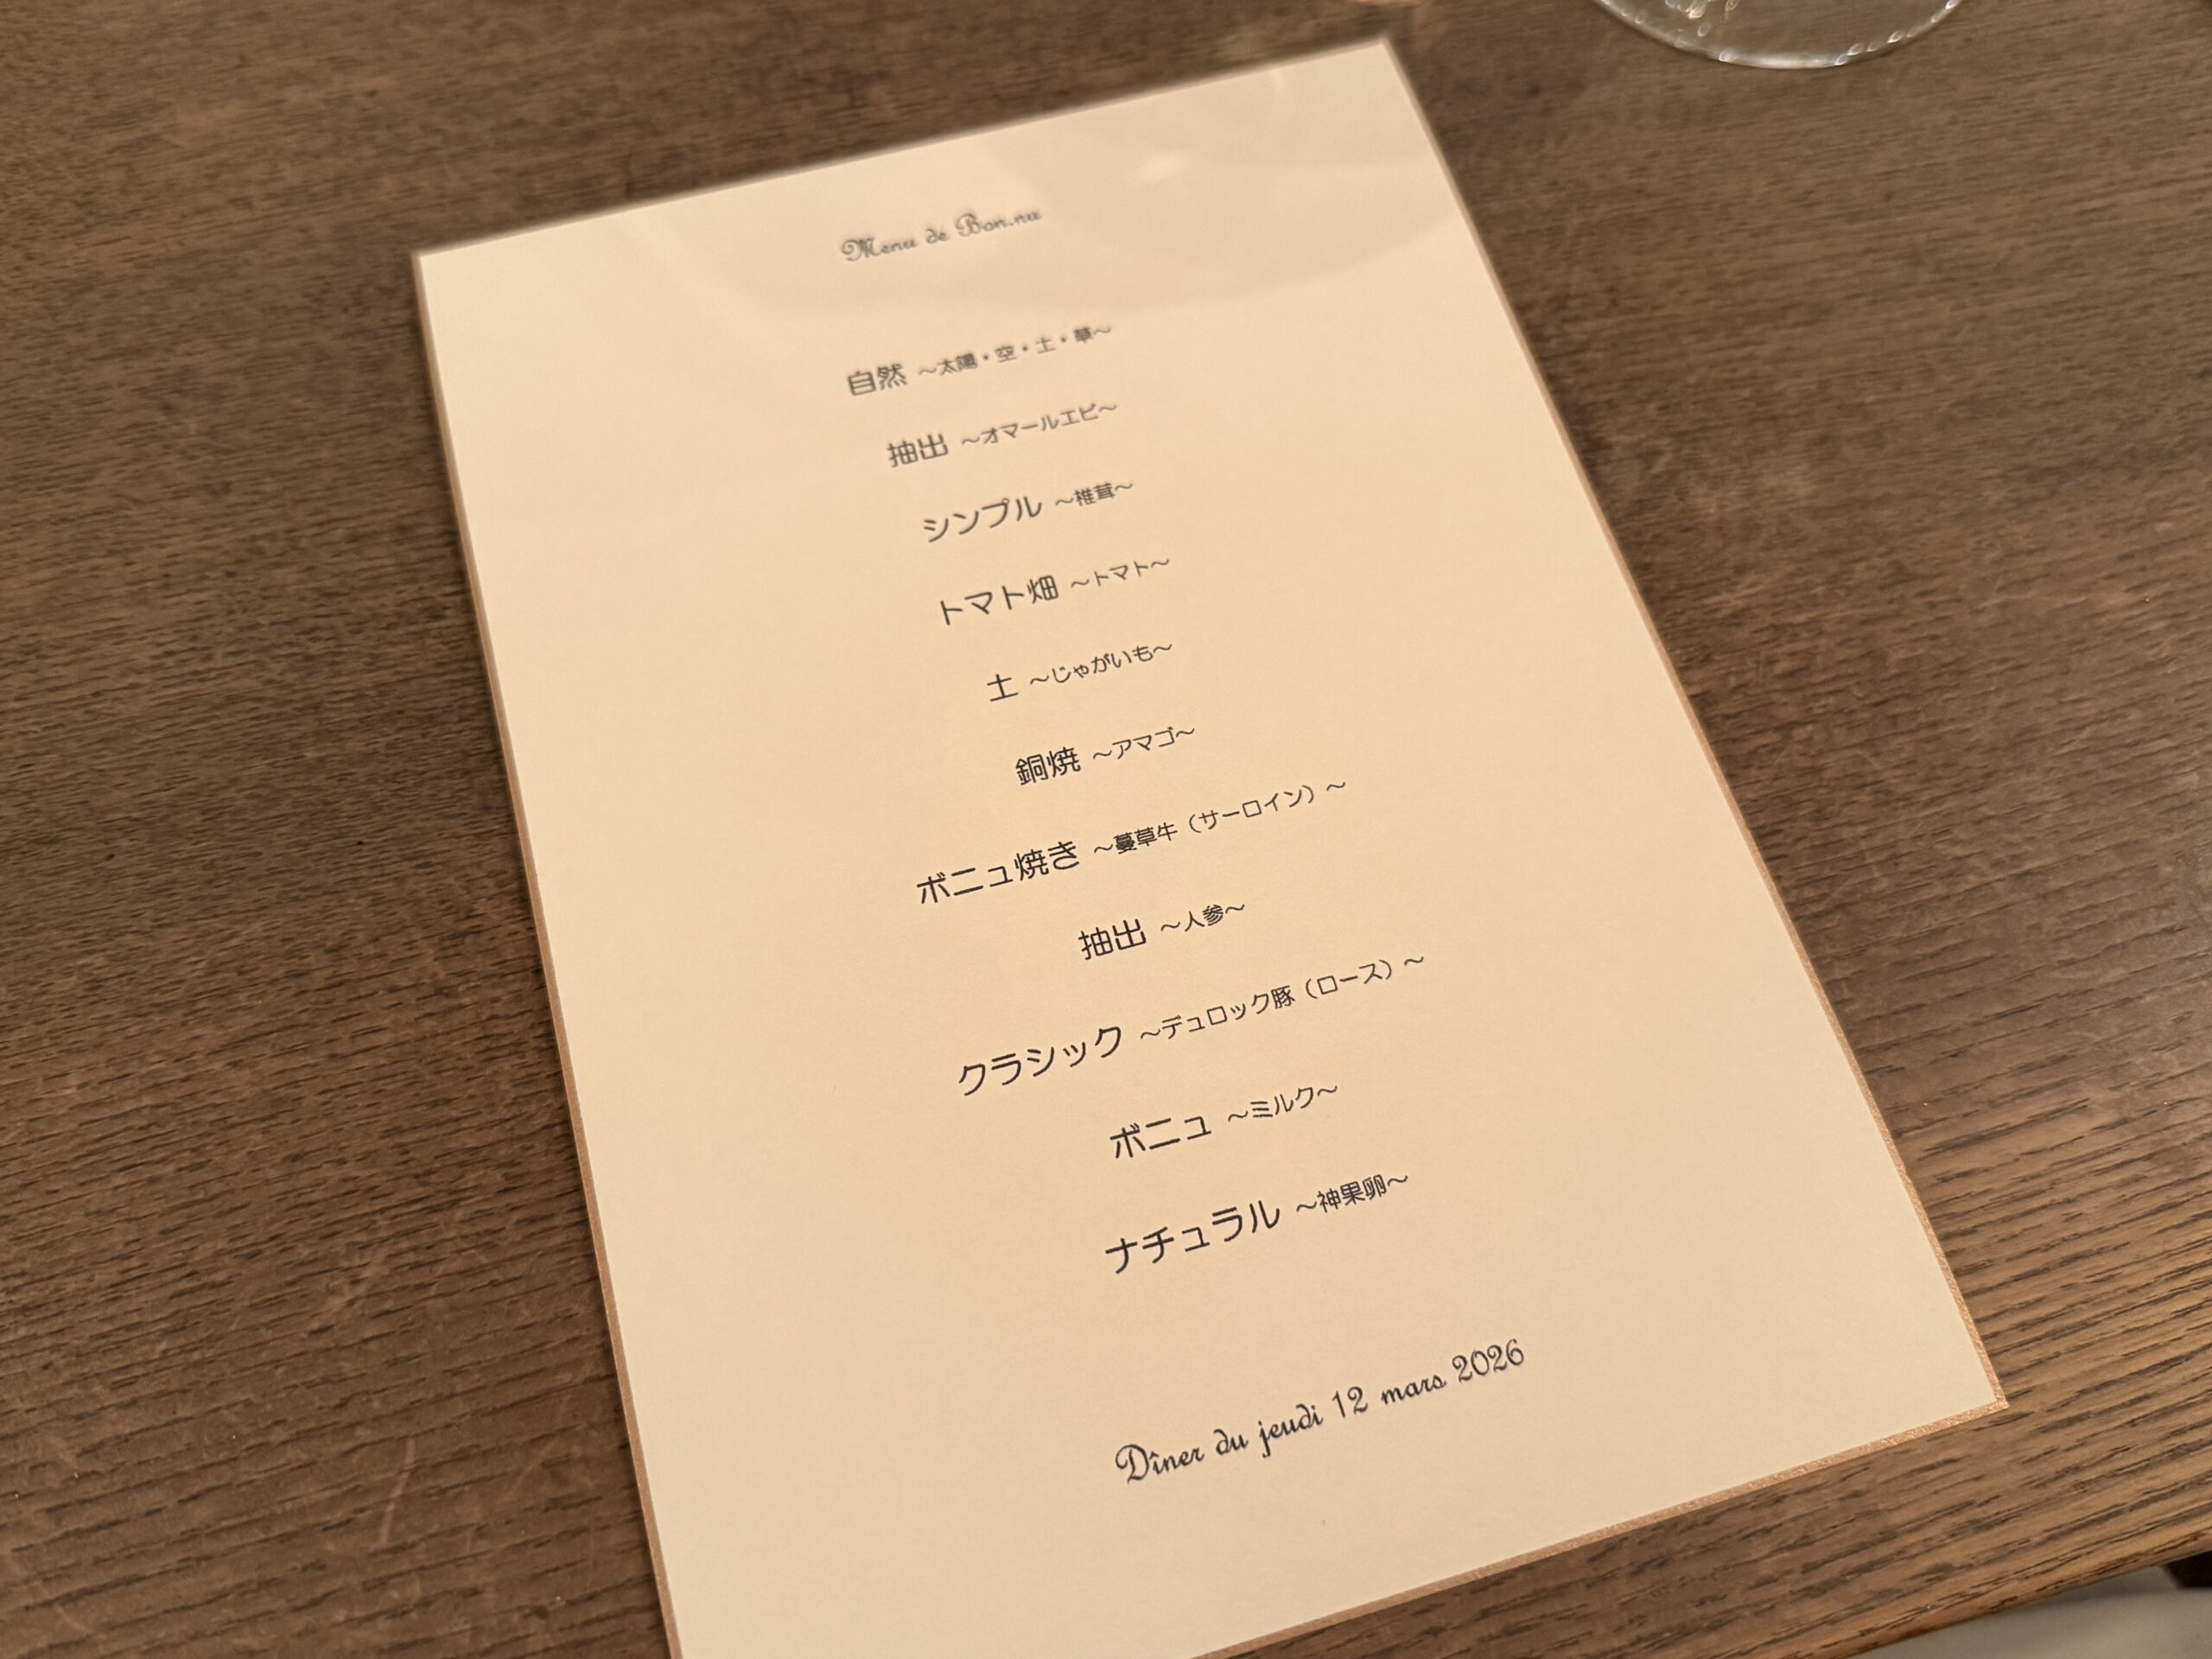 Menu de Bon.nu
自然 ～太陽・空・土・草～
抽出 ～オマールエビ～
シンプル ～椎茸～
トマト畑 ～トマト～
土 ～じゃがいも～
銅焼 ～アマゴ～
ボニュ焼き ～蔓草牛（サーロイン）～
抽出 ～人参～
クラシック ～デュロック豚（ロース）～
ボニュ ～ミルク～
ナチュラル ～神果卵～
Dîner du jeudi 12 mars 2026